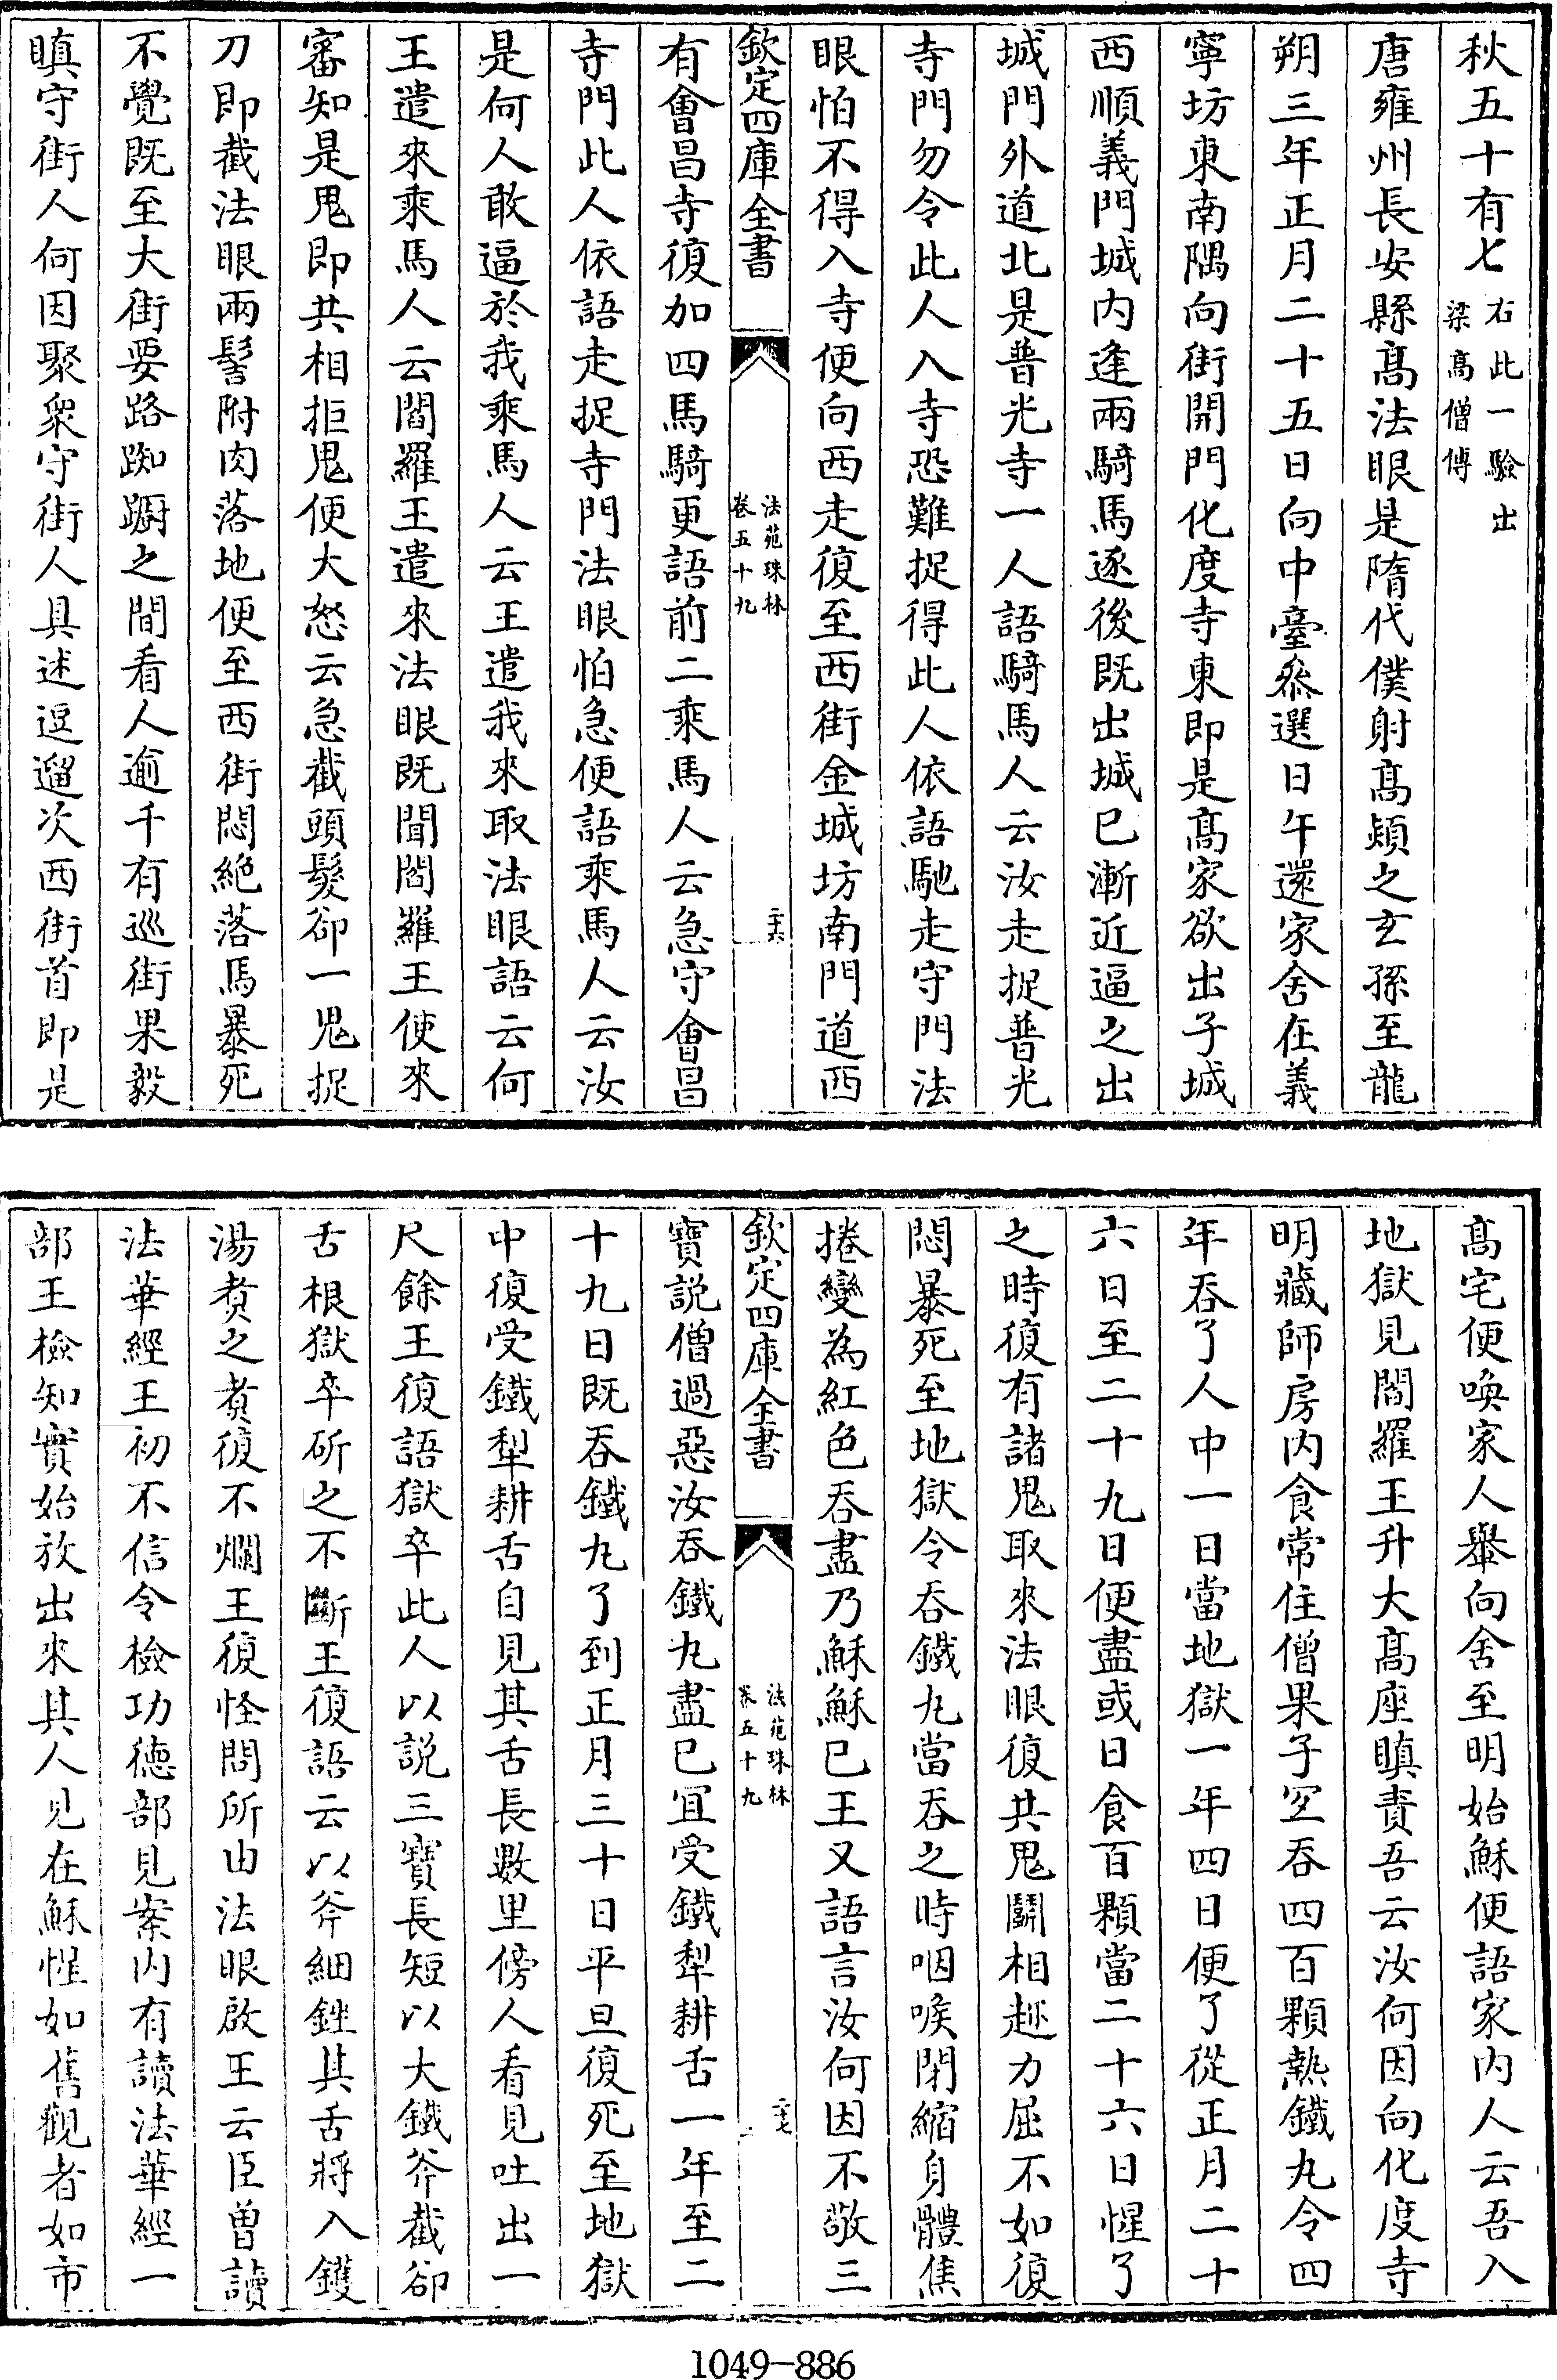 秋五十有七右此一驗出梁高僧傳
唐雍州長安縣髙法眼是隋代僕射髙熲之玄孫至龍
朔三年正月二十五日向中臺叅選日午還家舍在義
寧坊東南隅向街開門化度寺東即是髙家欲出子城
西順義門城内逢兩騎馬逐後既出城已漸近逼之出
城門外道北是普光寺一人語騎馬人云汝走捉普光
寺門勿令此人入寺恐難捉得此人依語馳走守門法
眼怕不得入寺便向西走復至西街金城坊南門道西
欽定四庫全書
法苑珠林
卷五十九
二十六
有會昌寺復加四馬騎更語前二乘馬人云急守會昌
寺門此人依語走捉寺門法眼怕急便語乘馬人云汝
是何人敢逼於我乘馬人云王遣我來取法眼語云何
王遣來乘馬人云閻羅王遣來法眼既聞閻羅王使來
審知是鬼即共相拒鬼便大怒云急截頭髮卻一鬼捉
刀即截法眼兩髻附肉落地便至西街悶絶落馬暴死
不覺既至大街要路踟蹰之間看人逾千有巡街果毅
瞋守街人何因聚衆守街人具述逗遛次西街首即是
髙宅便喚家人舉向舍至明始穌便語家内人云吾入
地獄見閻羅王升大髙座瞋責吾云汝何因向化度寺
明藏師房内食常住僧果子宜吞四百顆熱鐵丸令四
年吞了人中一日當地獄一年四日便了從正月二十
六日至二十九日便盡或日食百顆當二十六日惺了
之時復有諸鬼取來法眼復共鬼鬬相趂力屈不如復
悶暴死至地獄令吞鐵丸當吞之時咽喉閉縮身體焦
捲變為紅色吞盡乃穌穌已王又語言汝何因不敬三
欽定四庫全書
法苑珠林
卷五十九
二十七
寶説僧過惡汝吞鐵丸盡已宜受鐵犁耕舌一年至二
十九日既吞鐵丸了到正月三十日平旦復死至地獄
中復受鐵犁耕舌自見其舌長數里傍人看見吐出一
尺餘王復語獄卒此人以説三寶長短以大鐵斧截卻
舌根獄卒斫之不斷王復語云以斧細剉其舌將入鑊
湯煑之煑復不爛王復怪問所由法眼啟王云臣曽讀
法華經王初不信令檢功德部見案内有讀法華經一
部王檢知實始放出來其人見在穌惺如舊觀者如市
1049-886